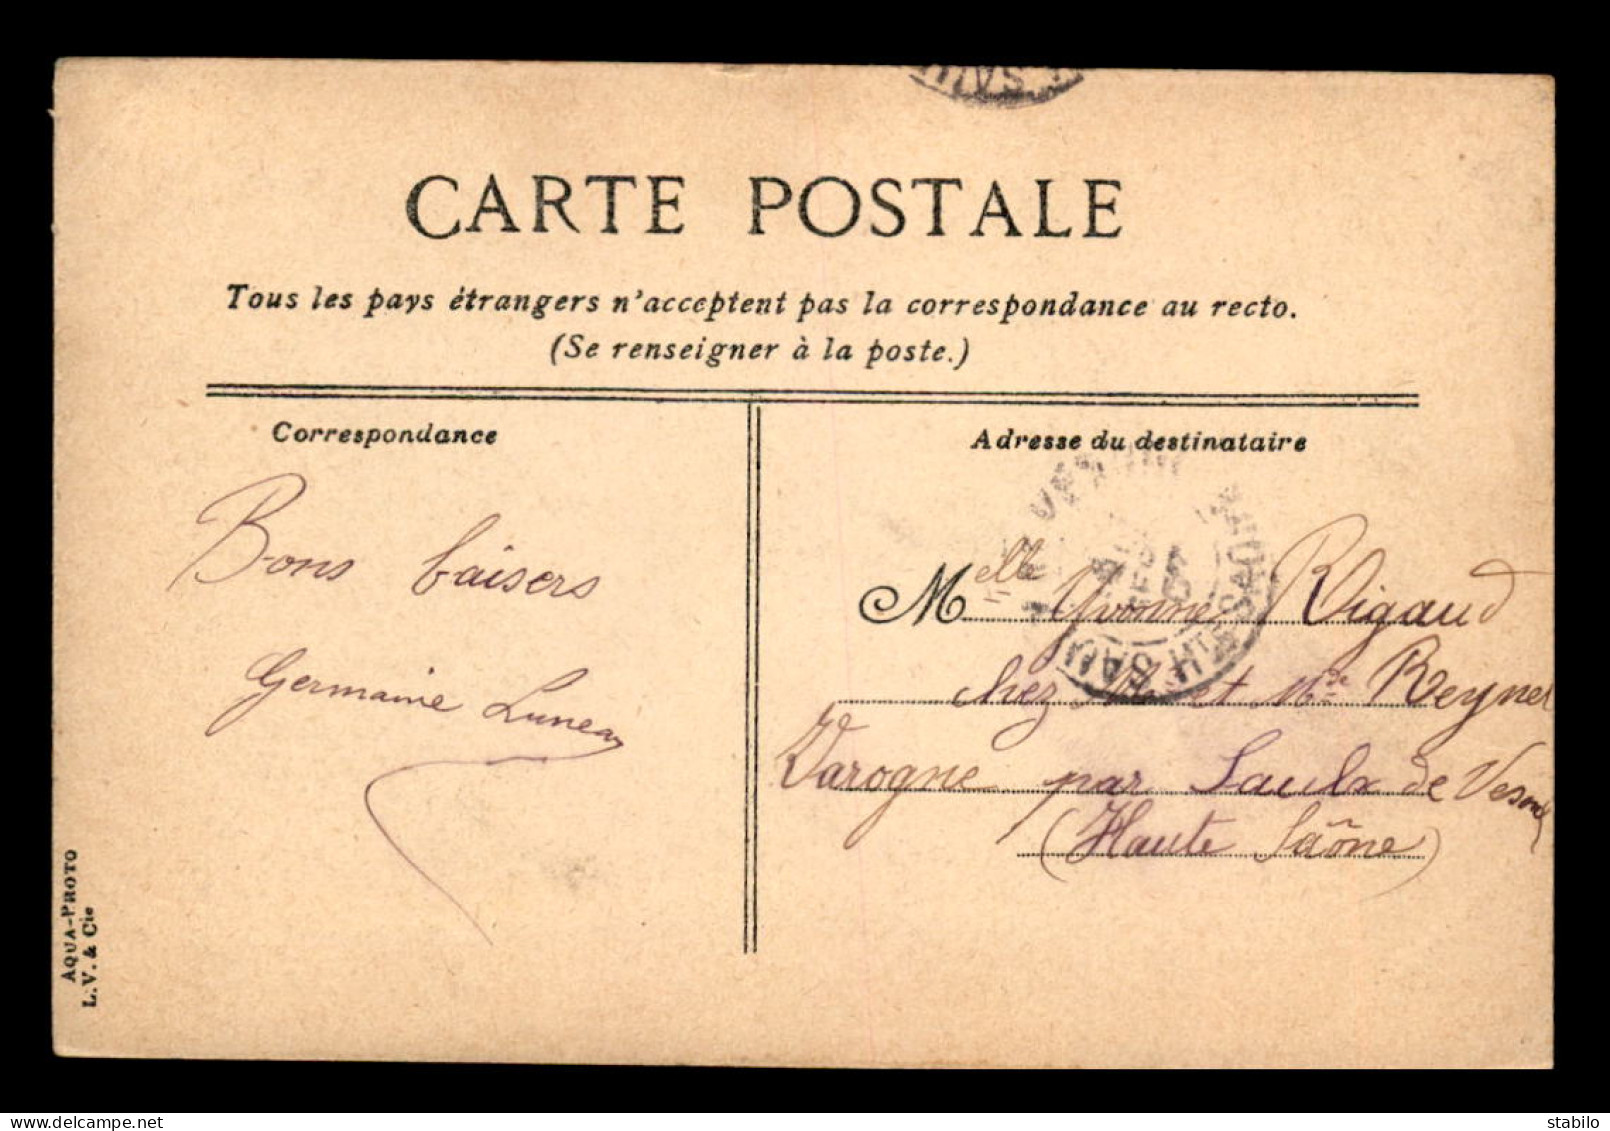 CARTE POSTALE
Tous les pays étrangers n'acceptent pas la correspondance au recto.
(Se renseigner à la poste.)
Correspondance
Bons baisers
Germaine Luneau
Adresse du destinataire
Melle Yvonne Rigaud
chez M. et Mde Reynet
Varogne par Saulx de Vesoul
(Haute Saône)
HTE SAÔNE
AQUA-PHOTO
L.V. & Cie
delcampe.net
stabilo